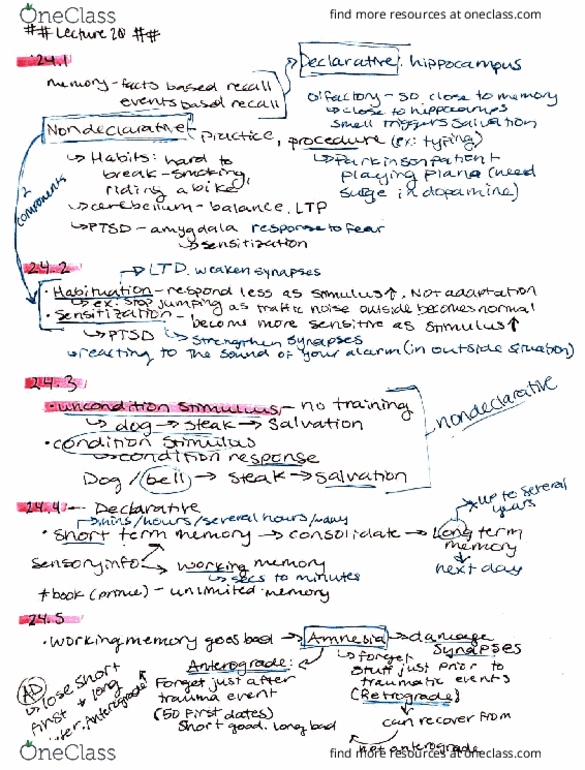 OneClass
find more resources at oneclass.com
## Lecture 20 ##
24.1
memory - facts based recall
events based recall
Declarative: hippocampus
olfactory - so close to memory
↳ close to hippocamps
smell triggers salvation
Nondeclarative - practice, procedure (ex: typing)
2 components
↳ Habits: hard to
break - smoking,
riding a bike,
↳ Parkinson patient
playing piano (need
surge in dopamine)
↳ cerebellum - balance, LTP
↳ PTSD - amygdala response to fear
↳ sensitization
24.2
→ LTD. weaken synapses
• Habituation - respond less as stimulus ↑, Not adaptation
↳ ex: stop jumping as traffic noise outside becomes normal
• Sensitization - become more sensitive as stimulus ↑
↳ PTSD ↳ strengthen synapses
↳ reacting to the sound of your alarm (in outside situation)
24.3
• uncondition stimulus - no training
↳ dog → steak → salvation
• condition stimulus
↳ condition response
Dog / bell → steak → salvation
nondeclarative
24.4 - Declarative
→ mins / hours / several hours /
→ up to several
years
• short term memory → consolidate → Long term
memory
↓
next day
sensory info → working memory
↳ secs to minutes
* book (prime) - unlimited memory
24.5
• working memory goes bad → Amnesia → damage
synapses
↳ forget
stuff just prior to
traumatic events
(Retrograde)
↳ can recover from
not anterograde
Anterograde:
Forget just after
trauma event
(50 First dates)
short good. long bad
AD
↳ lose short
first + long
Anterograde
OneClass
find more resources at oneclass.com